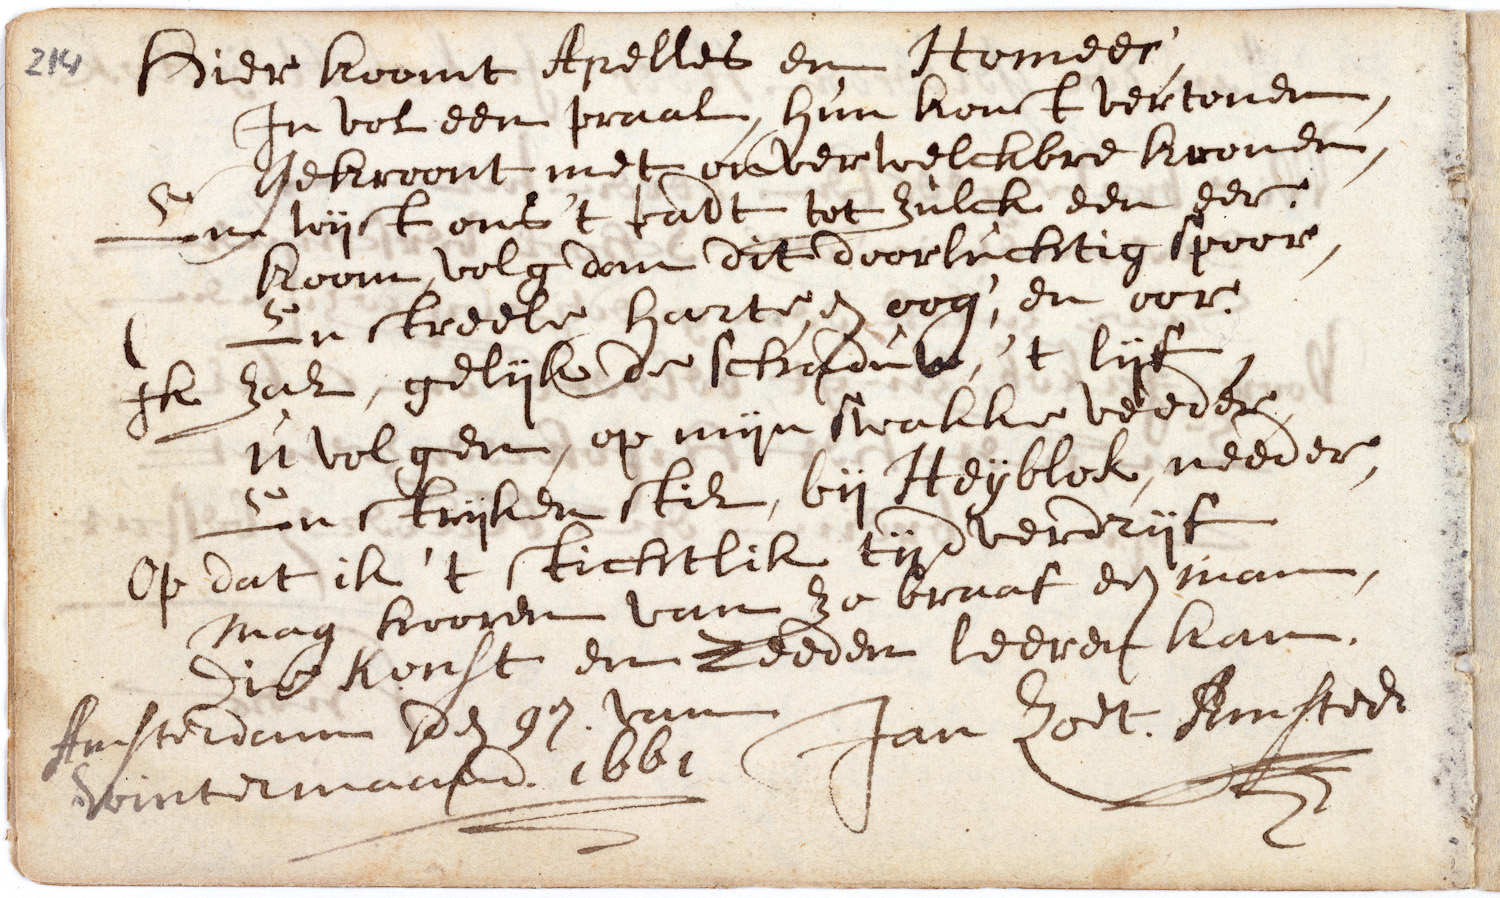 214
Hier koomt Apelles en Homeer,
In vol een praal, hun konst vertonen,
Gekroont met onverwelckbre kronen,
En wijst ons 't padt tot zulck een eer.
koom, volg dan dit doorluchtig spoor,
En streele harte, en oog, en oor.
Ik zal, gelijk de schaduw, 't lijf,
U volgen, op mijn swakke veeder,
En strijken stil, bij Heyblok, needer,
Op dat ik 't stichtlik tijdverdrijf
Mag hooren van zo braaf een man,
Die konst en zeeden leeren kan.
Amsterdam den 9n. van
Wintermaand. 1661
Jan Zoet. Amsted.